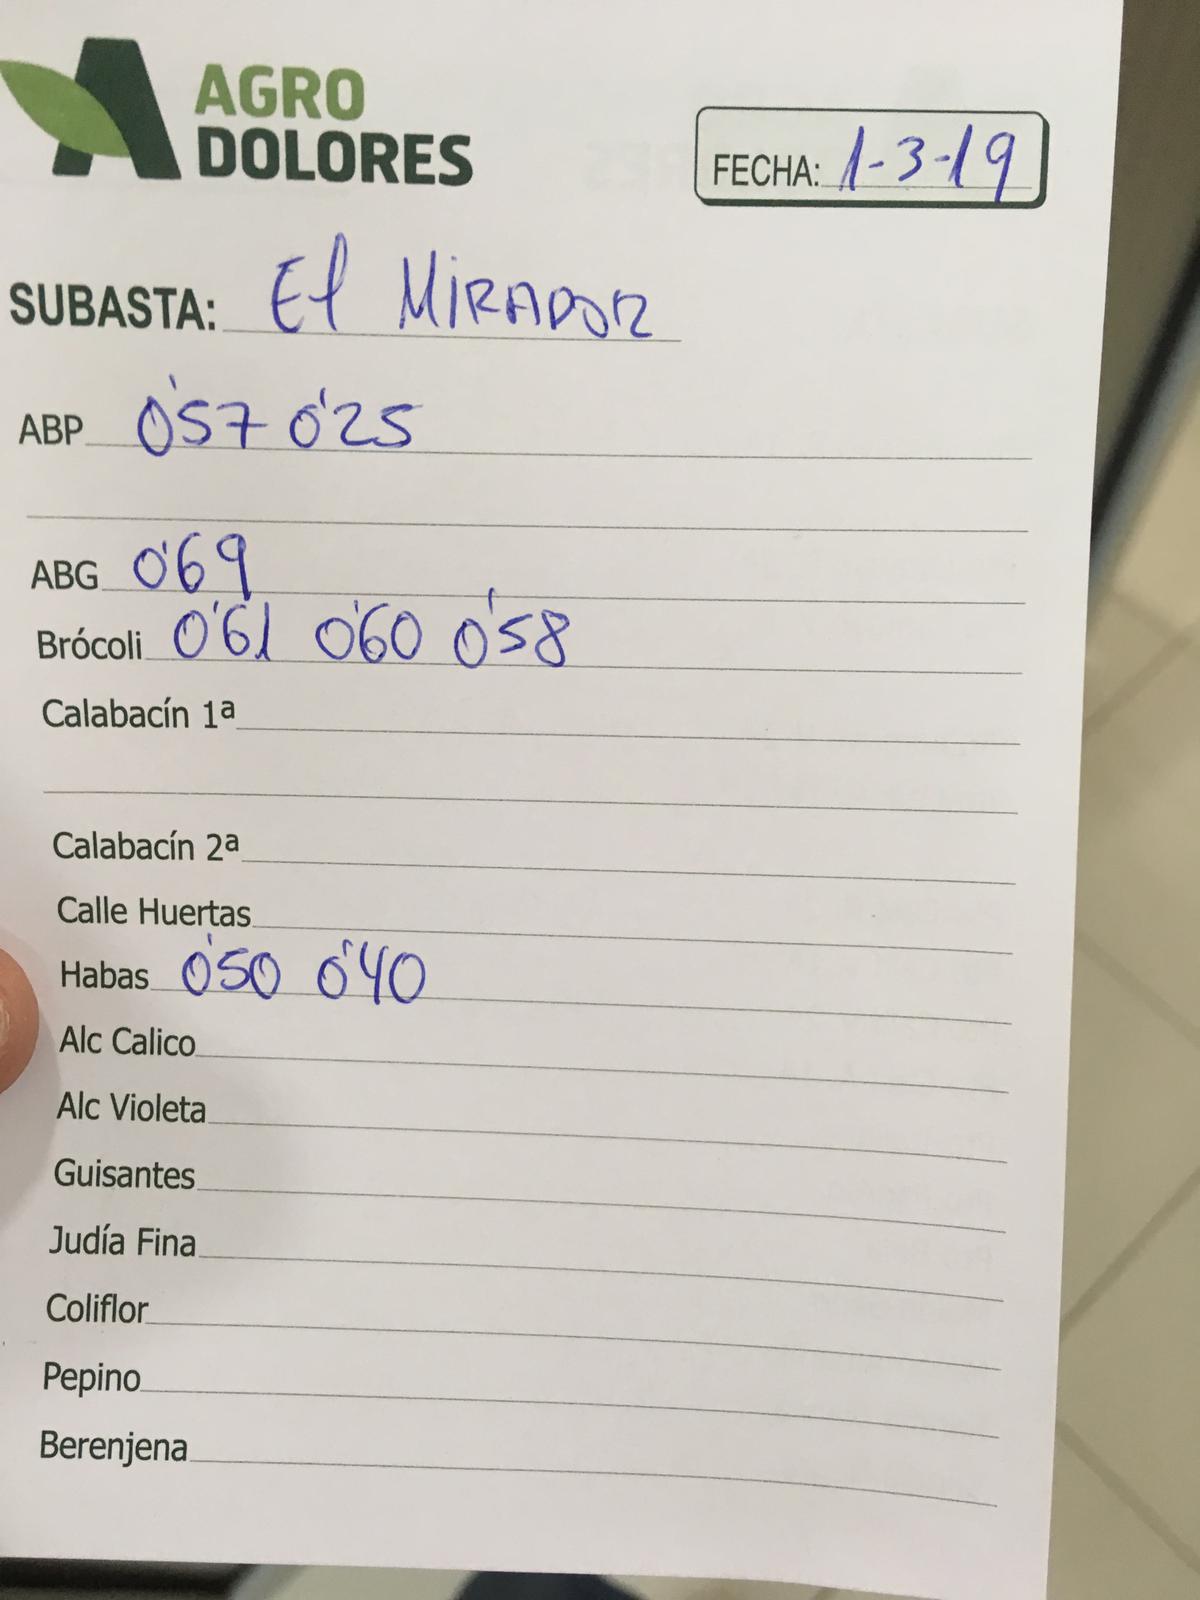 AGRO
DOLORES
FECHA: 1-3-19
SUBASTA: El MIRADOR
ABP 0'57 0'25
ABG 0'69
Brócoli 0'61 0'60 0'58
Calabacín 1ª
Calabacín 2ª
Calle Huertas
Habas 0'50 0'40
Alc Calico
Alc Violeta
Guisantes
Judía Fina
Coliflor
Pepino
Berenjena